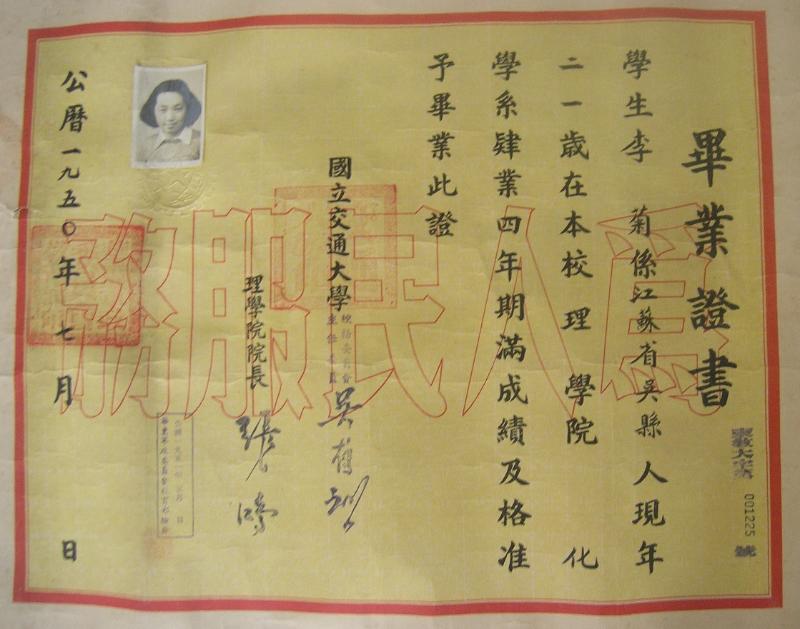 畢業證書
學生李 菊係江蘇省吳縣人現年
二一歲在本校理學院 化
學系肄業四年期滿成績及格准
予畢業此證
國立交通大學校務委員會
吳有訓
理學院院長
張
公曆一九五〇年七月 日
為人民服務
001225 號